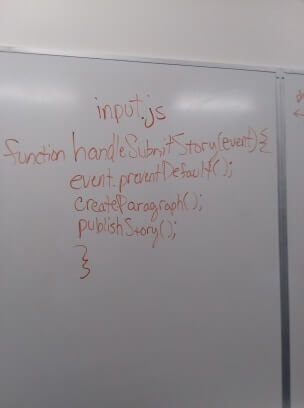 input.js
function handleSubmitStory(event){
event.preventDefault();
createParagraph();
publishStory();
}